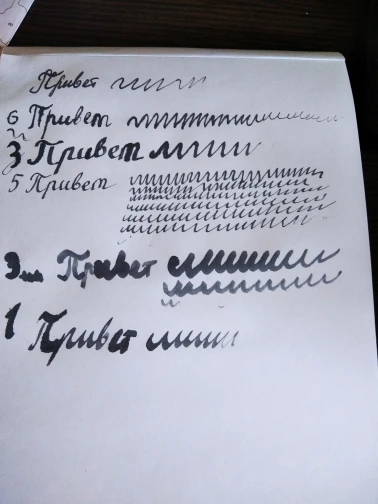 Привет
6 Привет
3 Привет
5 Привет
Привет
1 Привет